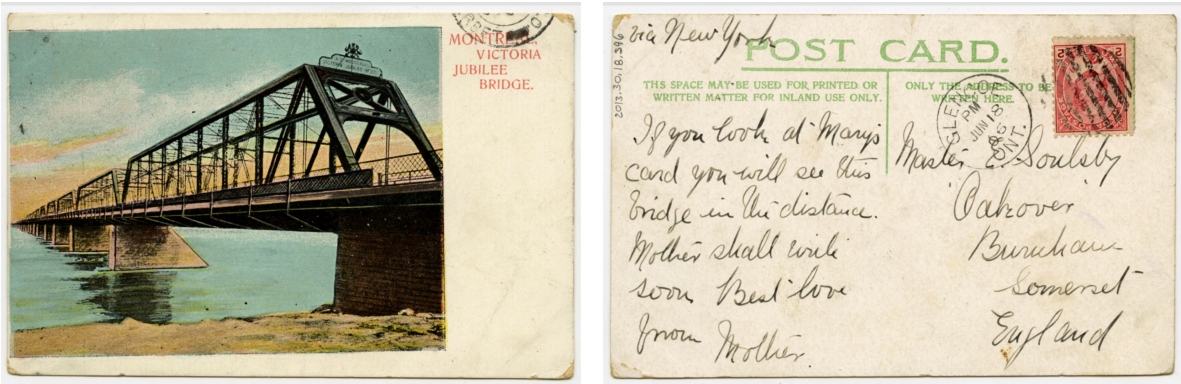 MONTREAL,
VICTORIA
JUBILEE
BRIDGE.
2013.30.18.396
via New York
POST CARD.
THIS SPACE MAY BE USED FOR PRINTED OR
WRITTEN MATTER FOR INLAND USE ONLY.
ONLY THE ADDRESS TO BE
WRITTEN HERE.
2 2
GLENCOE
PM
JUN 18
06
ONT.
If you look at Mary's
card you will see this
bridge in the distance.
Mother shall write
soon Best love
from Mother.
Master E. Soulsby
Oakover
Burnham
Somerset
England